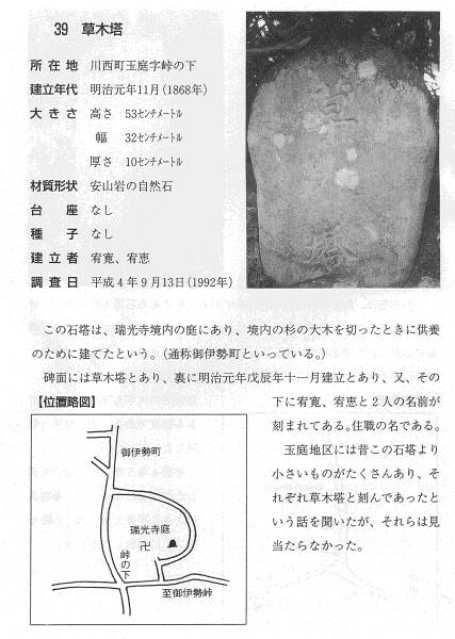 39 草木塔
所在地 川西町玉庭字峠の下
建立年代 明治元年11月(1868年)
大きさ 高さ 53センチメートル
幅 32センチメートル
厚さ 10センチメートル
材質形状 安山岩の自然石
台座 なし
種子 なし
建立者 宥寛、宥恵
調査日 平成4年9月13日(1992年)
この石塔は、瑞光寺境内の庭にあり、境内の杉の大木を切ったときに供養
のために建てたという。(通称御伊勢町といっている。)
碑面には草木塔とあり、裏に明治元年戊辰年十一月建立とあり、又、その
下に宥寛、宥恵と2人の名前が
刻まれてある。住職の名である。
玉庭地区には昔この石塔より
小さいものがたくさんあり、そ
れぞれ草木塔と刻んであったと
いう話を聞いたが、それらは見
当たらなかった。
【位置略図】
御伊勢町
瑞光寺庭
卍
峠の下
至御伊勢峠
草
塔